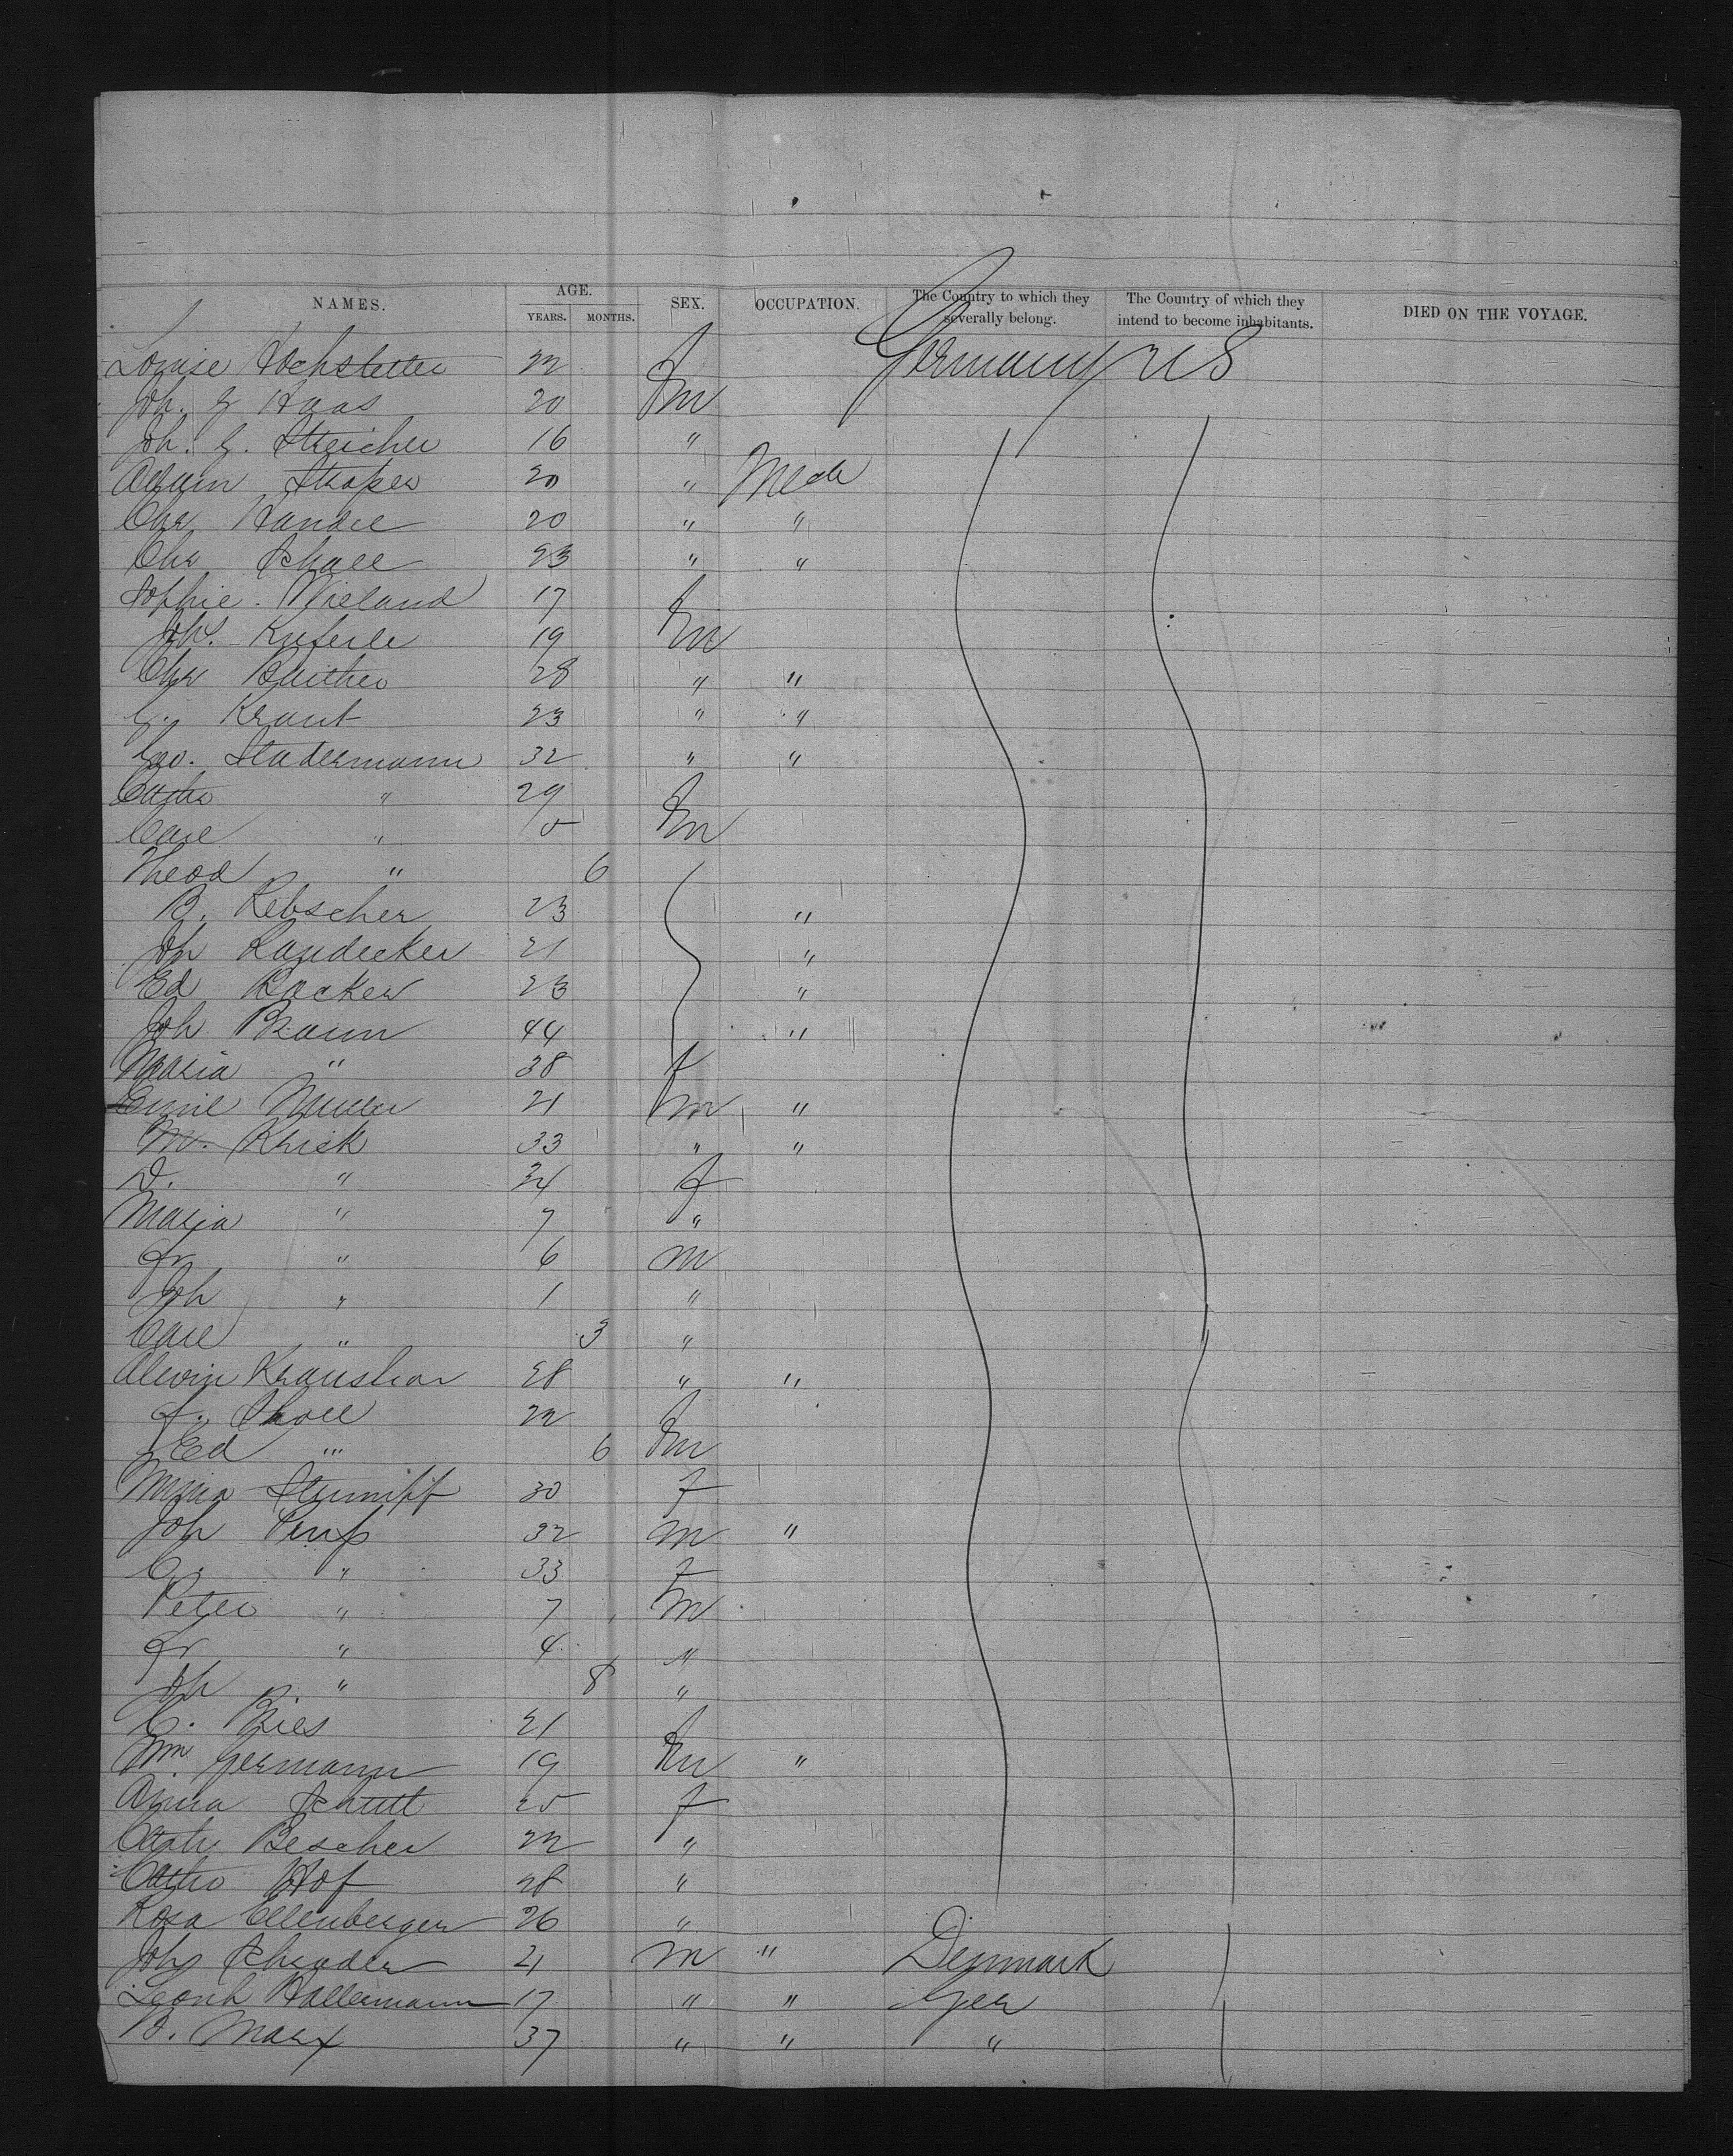 NAMES. AGE. YEARS. MONTHS. SEX. OCCUPATION. The Country to which they severally belong. The Country of which they intend to become inhabitants. DIED ON THE VOYAGE.
Louise Hochstetter 22 f Germany U S
Joh. G Haas 20 m
Joh. G. Streicher 16 "
20 " Mech
Chr Handel 20 " "
Chr Schall 23 " "
Sophie Wieland 17 f
Johs. Kuferle 19 m
Chr 28 " "
G. Kraut 23 " "
Geo. Stadermann 32 " "
Cath " 29 f
Carl " 5 m
Theod " 6
B. Rebscher 23 "
Joh Landecker 21 "
Ed 23 "
Joh Braun 44 "
Maria " 38 f
Emil Muller 21 m "
M. Krick 33 " "
D. " 34 f
Maria " 7 "
Fr " 6 m
Joh " 1 "
Carl " 3 "
Alwin Kraushar 28 " "
F. 22 f
Ed " 6 m
30 f
Joh 32 m "
C. " 33 f
Peter " 7 m
Fr " 4 "
Joh " 8 "
C. Ries 21 f
Wm. Germann 19 m "
Anna Schutt 25 f
Cath Bescher 22 "
Cath Hof 28 "
Rosa Ellenberger 26 "
Johs Schrader 21 m " Denmark
Leonh Hallermann 17 " " Ger
B. Marx 37 " " "